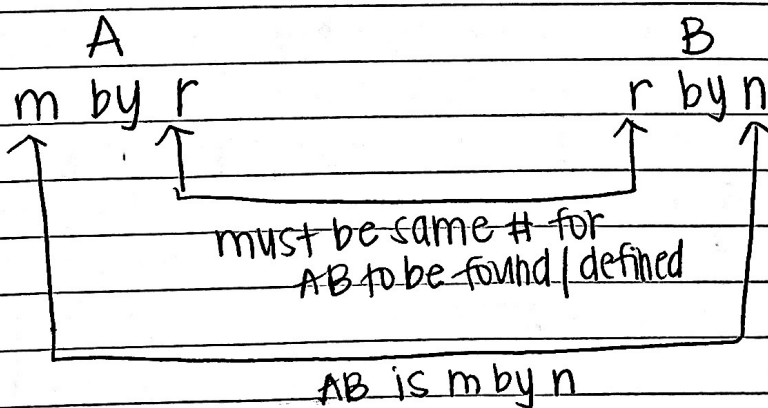 A B
m by r r by n
must be same # for
AB to be found / defined
AB is m by n